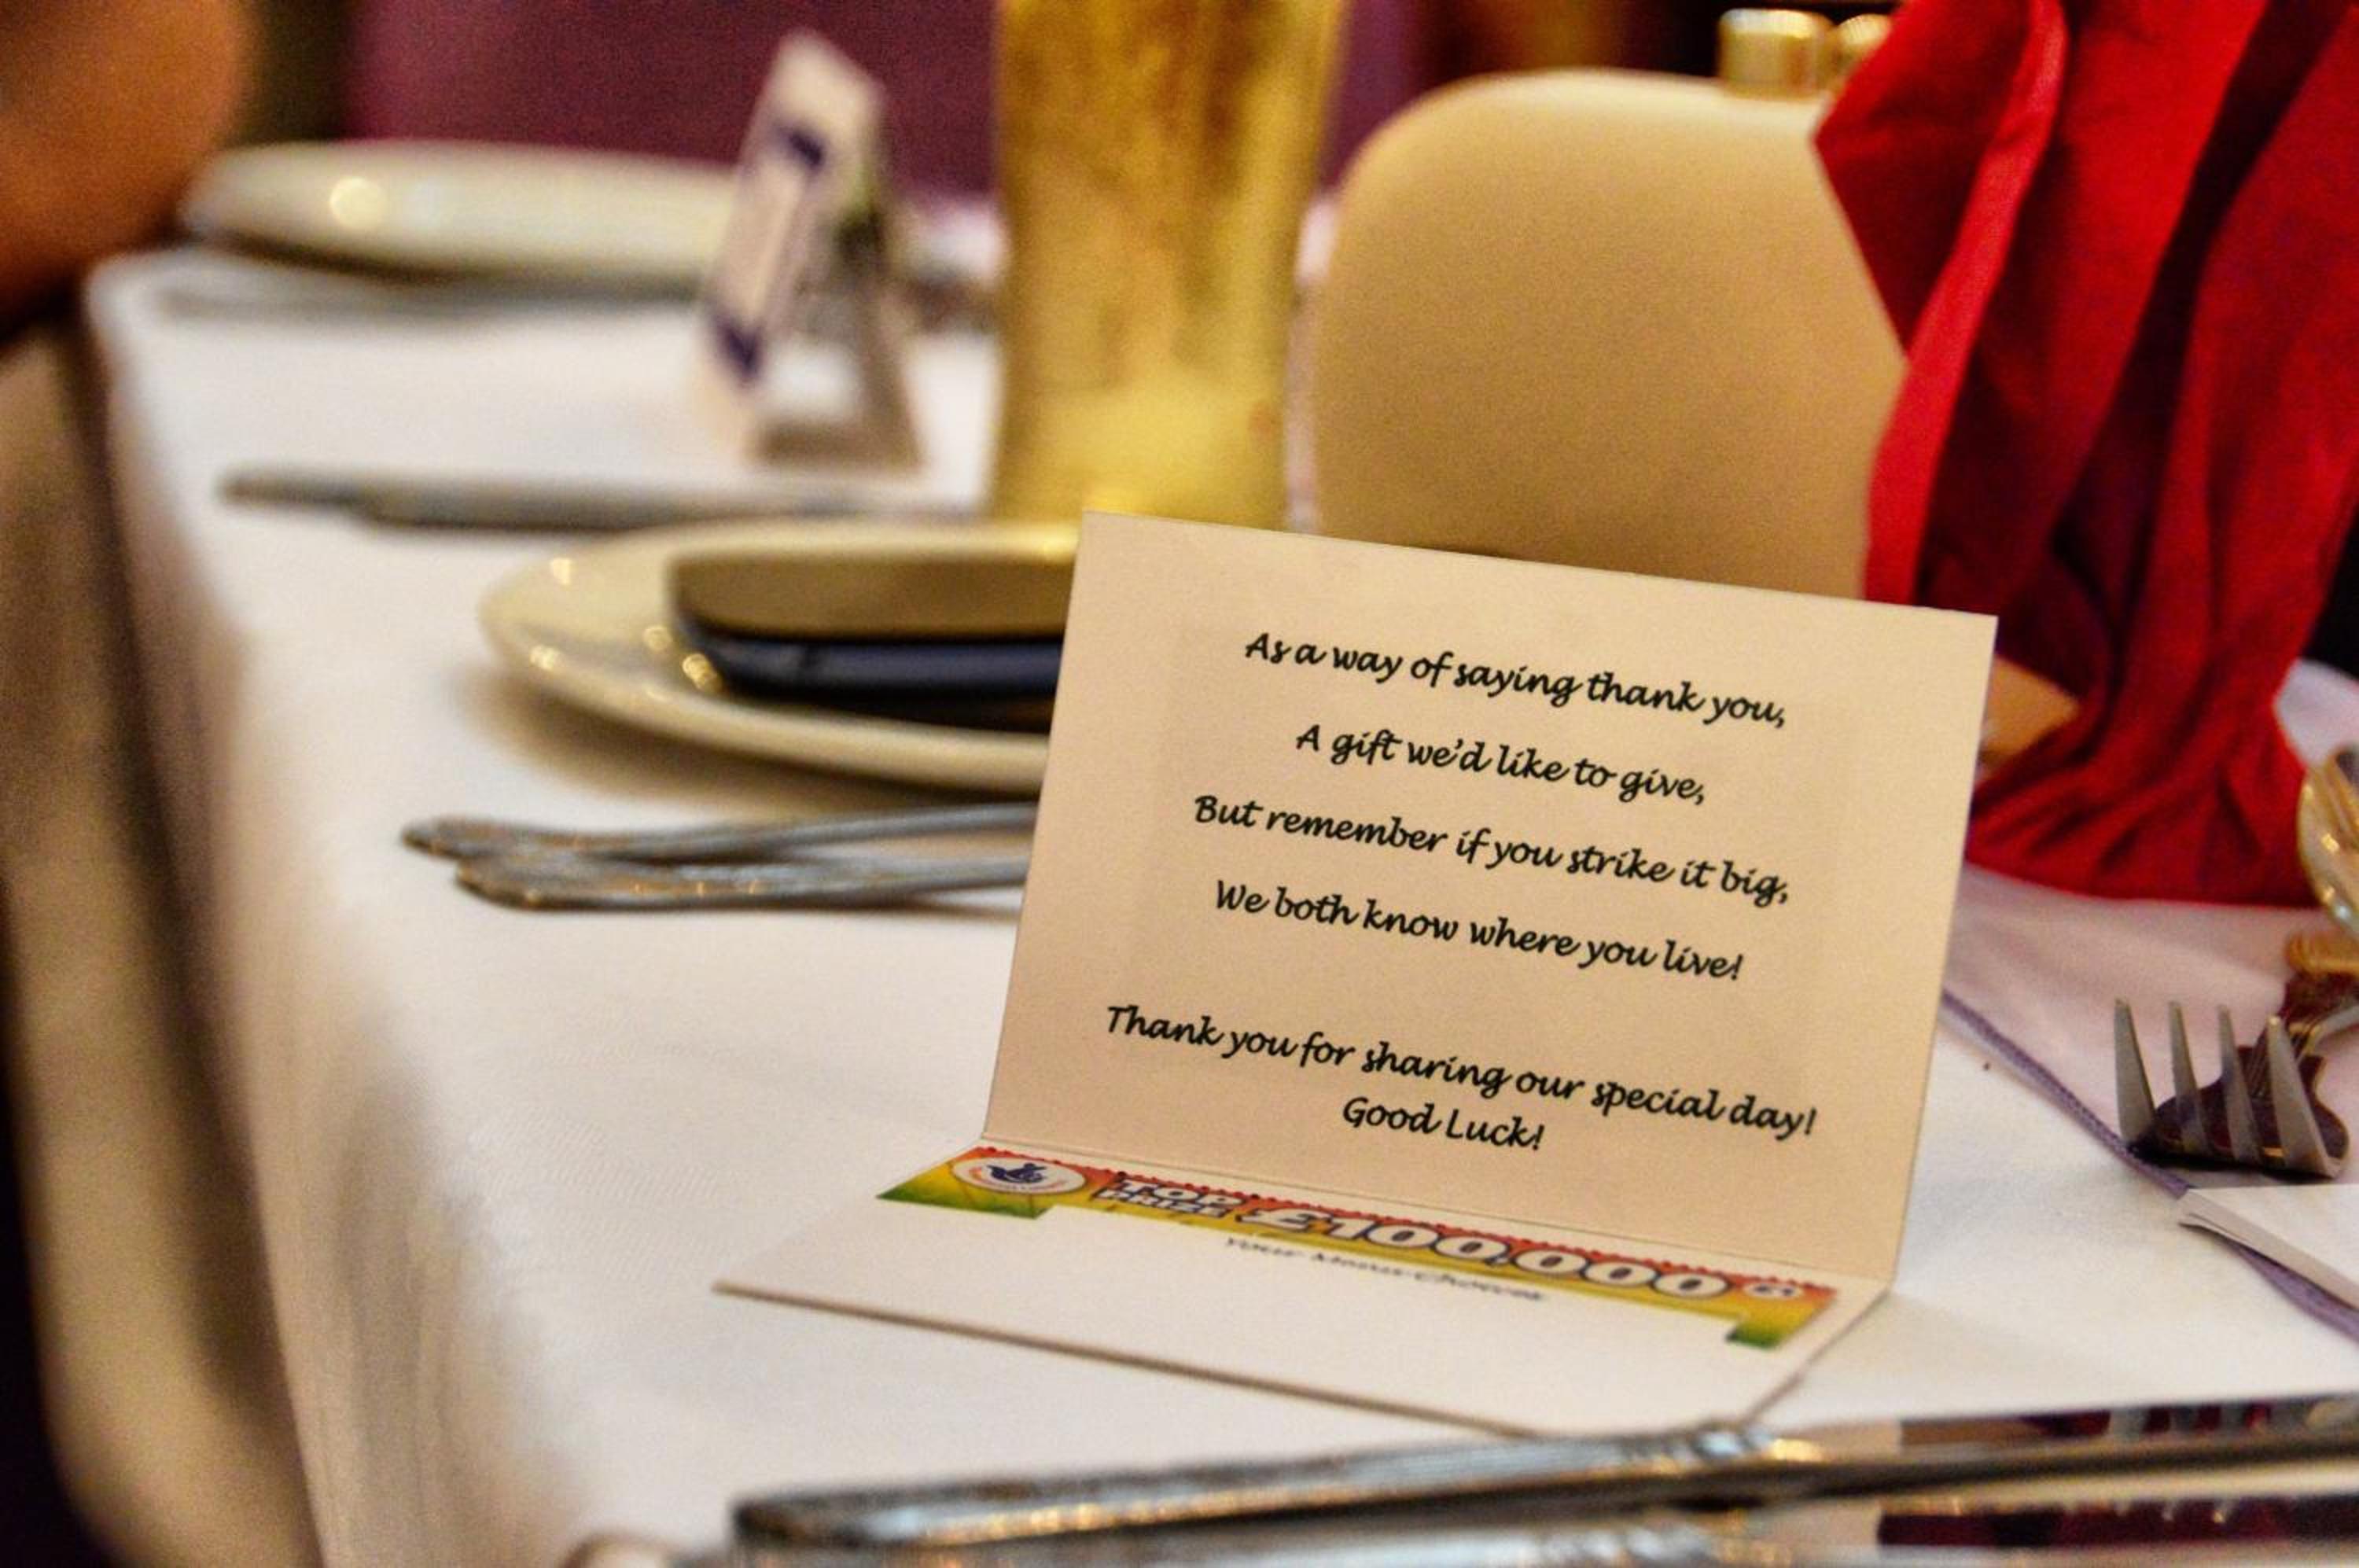 As a way of saying thank you,
A gift we'd like to give,
But remember if you strike it big,
We both know where you live!
Thank you for sharing our special day!
Good Luck!
TOP
PRIZE £100,000
Your Menu Choices